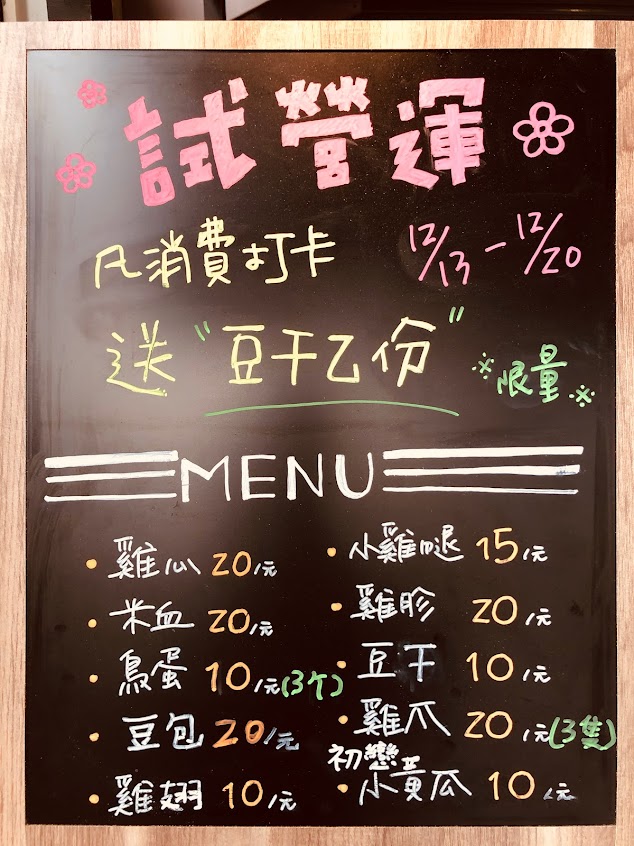 試營運
凡消費打卡 12/13-12/20
送"豆干乙份"
限量
MENU
• 雞心 20/元
• 米血 20/元
• 鳥蛋 10/元(3ケ)
• 豆包 20/元
• 雞翅 10/元
• 小雞腿 15/元
• 雞胗 20/元
• 豆干 10/元
• 雞爪 20/元(3隻)
初戀
• 小黃瓜 10/元